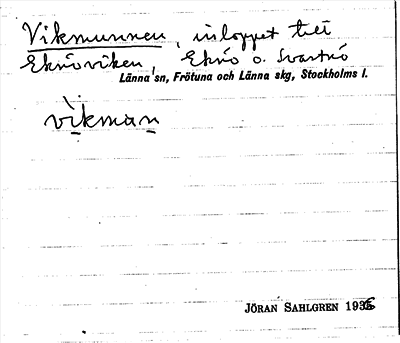 Vikmunnen, inloppet till
Eknöviken, Eknö o. Svartnö
Länna sn, Frötuna och Länna skg, Stockholms l.
vikman
JÖRAN SAHLGREN 1936